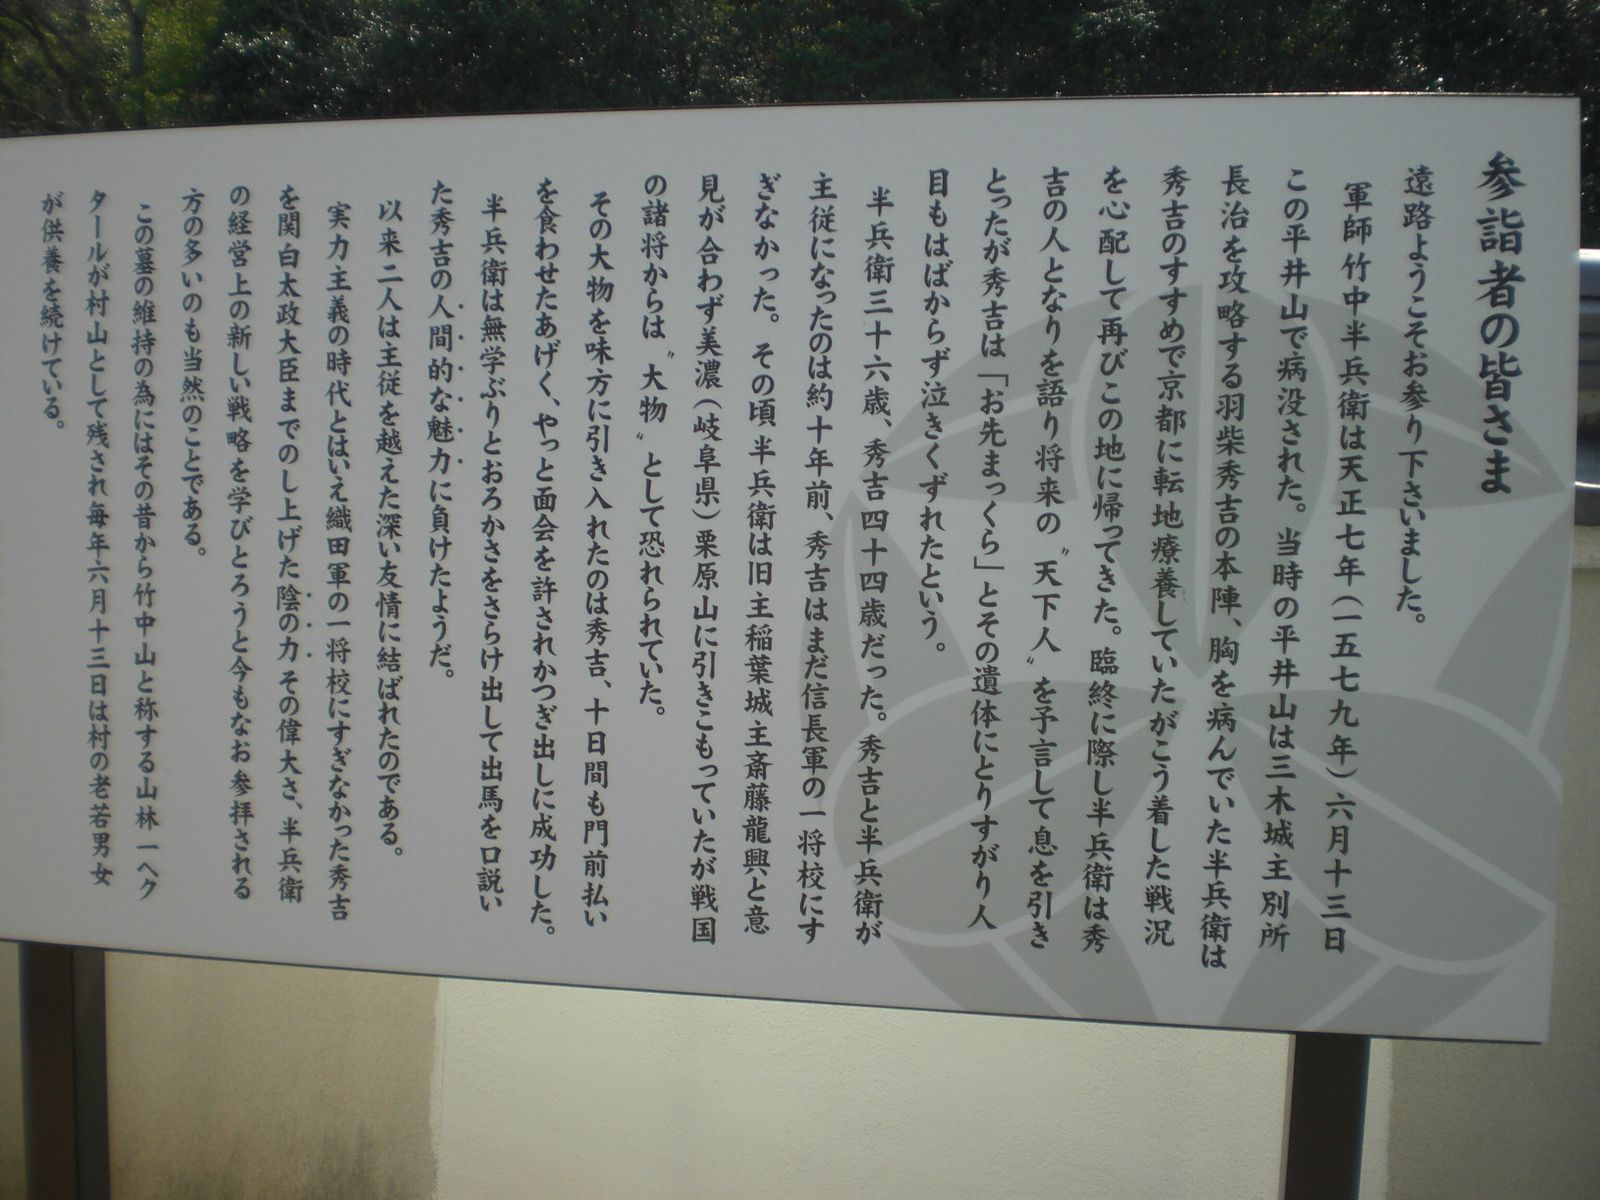 参詣者の皆さま
遠路ようこそお参り下さいました。
軍師竹中半兵衛は天正七年(一五七九年)六月十三日
この平井山で病没された。当時の平井山は三木城主別所
長治を攻略する羽柴秀吉の本陣、胸を病んでいた半兵衛は
秀吉のすすめで京都に転地療養していたがこう着した戦況
を心配して再びこの地に帰ってきた。臨終に際し半兵衛は秀
吉の人となりを語り将来の〝天下人〟を予言して息を引き
とったが秀吉は「お先まっくら」とその遺体にとりすがり人
目もはばからず泣きくずれたという。
半兵衛三十六歳、秀吉四十四歳だった。秀吉と半兵衛が
主従になったのは約十年前、秀吉はまだ信長軍の一将校にす
ぎなかった。その頃半兵衛は旧主稲葉城主斎藤龍興と意
見が合わず美濃(岐阜県)栗原山に引きこもっていたが戦国
の諸将からは〝大物〟として恐れられていた。
その大物を味方に引き入れたのは秀吉、十日間も門前払い
を食わせたあげく、やっと面会を許されかつぎ出しに成功した。
半兵衛は無学ぶりとおろかさをさらけ出して出馬を口説い
た秀吉の人間的な魅力に負けたようだ。
以来二人は主従を越えた深い友情に結ばれたのである。
実力主義の時代とはいえ織田軍の一将校にすぎなかった秀吉
を関白太政大臣までのし上げた陰の力その偉大さ、半兵衛
の経営上の新しい戦略を学びとろうと今もなお参拝される
方の多いのも当然のことである。
この墓の維持の為にはその昔から竹中山と称する山林一ヘク
タールが村山として残され毎年六月十三日は村の老若男女
が供養を続けている。